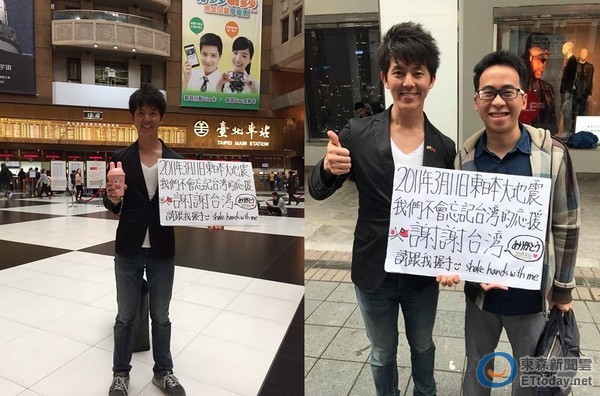 臺北車站
TAIPEI MAIN STATION
2011年3月11日東日本大地震
我們不會忘記台湾的応援
謝謝台湾
請跟我握手 shake hands with me
2011年3月11日東日本大地震
我們不會忘記台湾的応援
謝謝台湾 ありがとう
請跟我握手 shake hands with me
東森新聞雲
ETtoday.net